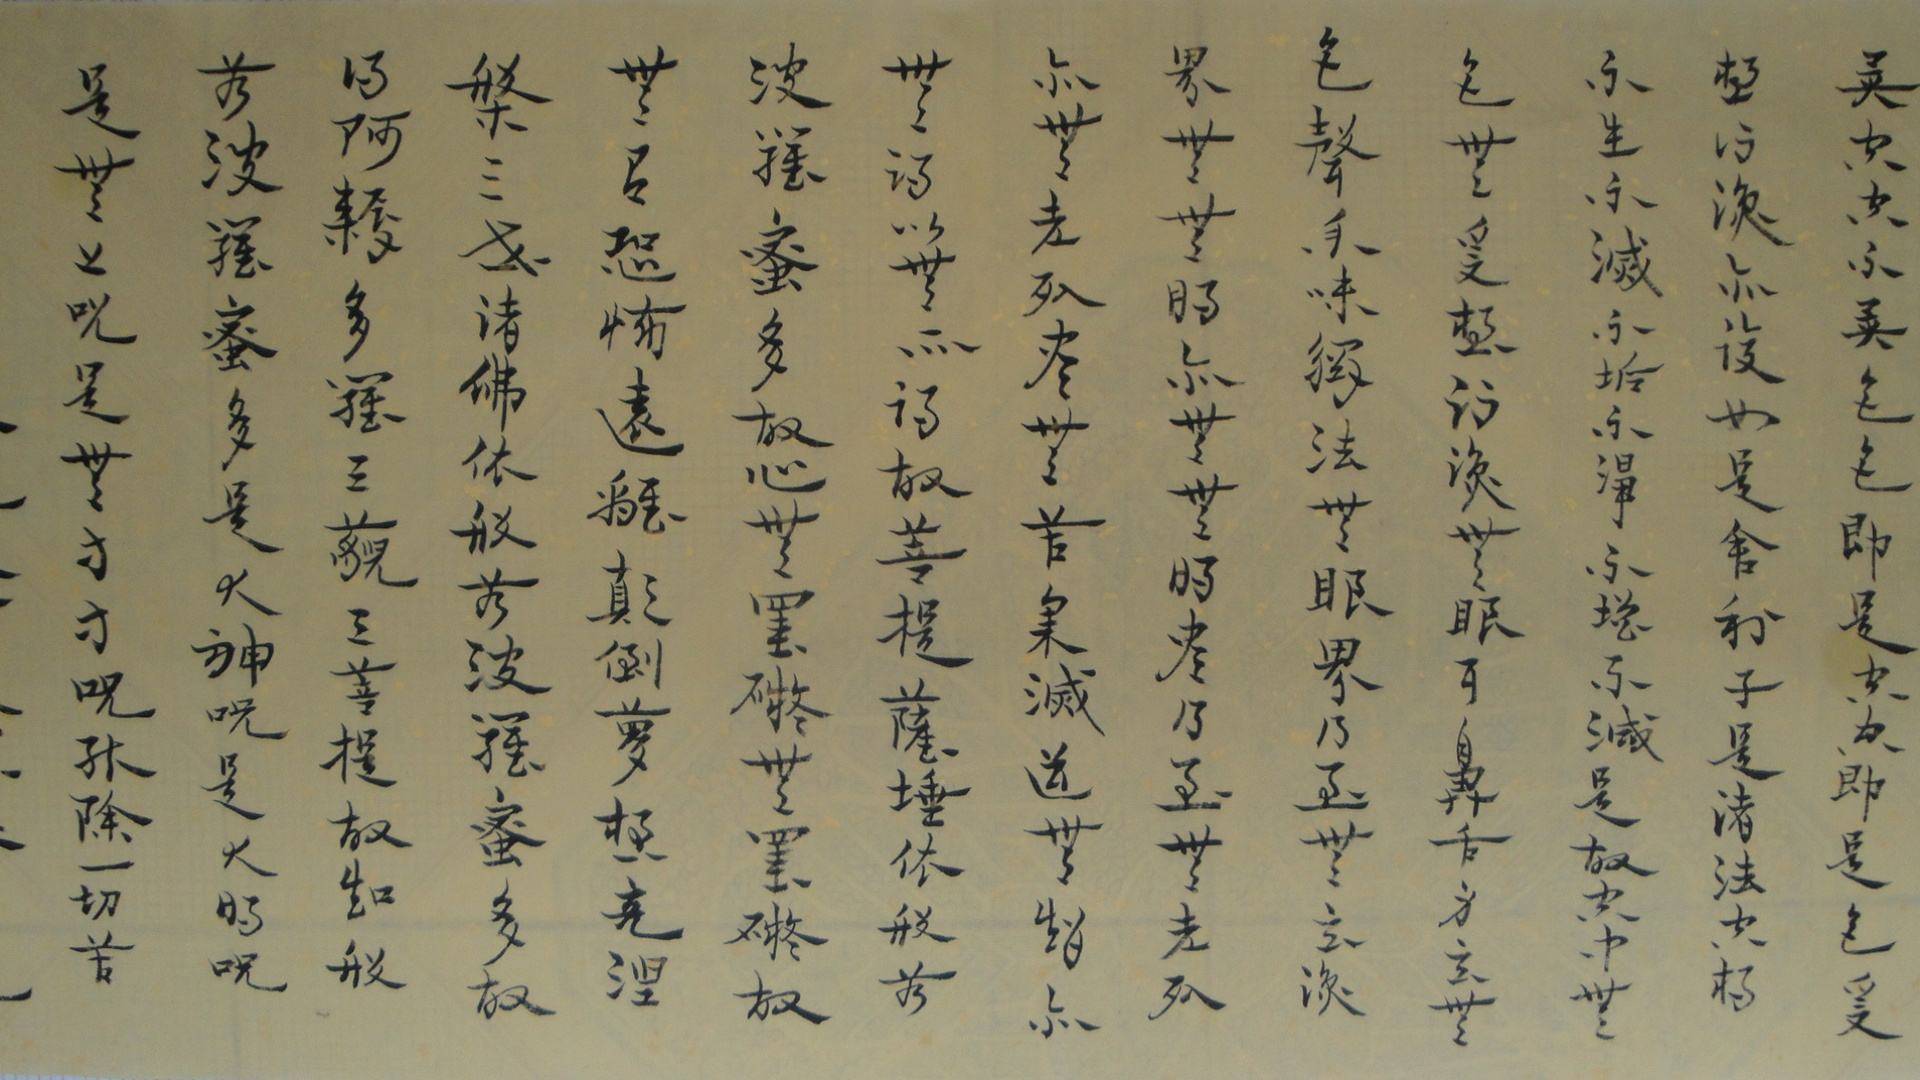 異空空不異色色即是空空即是色受
想行識亦復如是舍利子是諸法空相
不生不滅不垢不淨不增不減是故空中無
色無受想行識無眼耳鼻舌身意無
色聲香味觸法無眼界乃至無意識
界無無明亦無無明盡乃至無老死
亦無老死盡無苦集滅道無智亦
無得以無所得故菩提薩埵依般若
波羅蜜多故心無罣礙無罣礙故
無有恐怖遠離顛倒夢想究涅
槃三世諸佛依般若波羅蜜多故
得阿耨多羅三藐三菩提故知般
若波羅蜜多是大神咒是大明咒
是無上咒是無等等咒能除一切苦